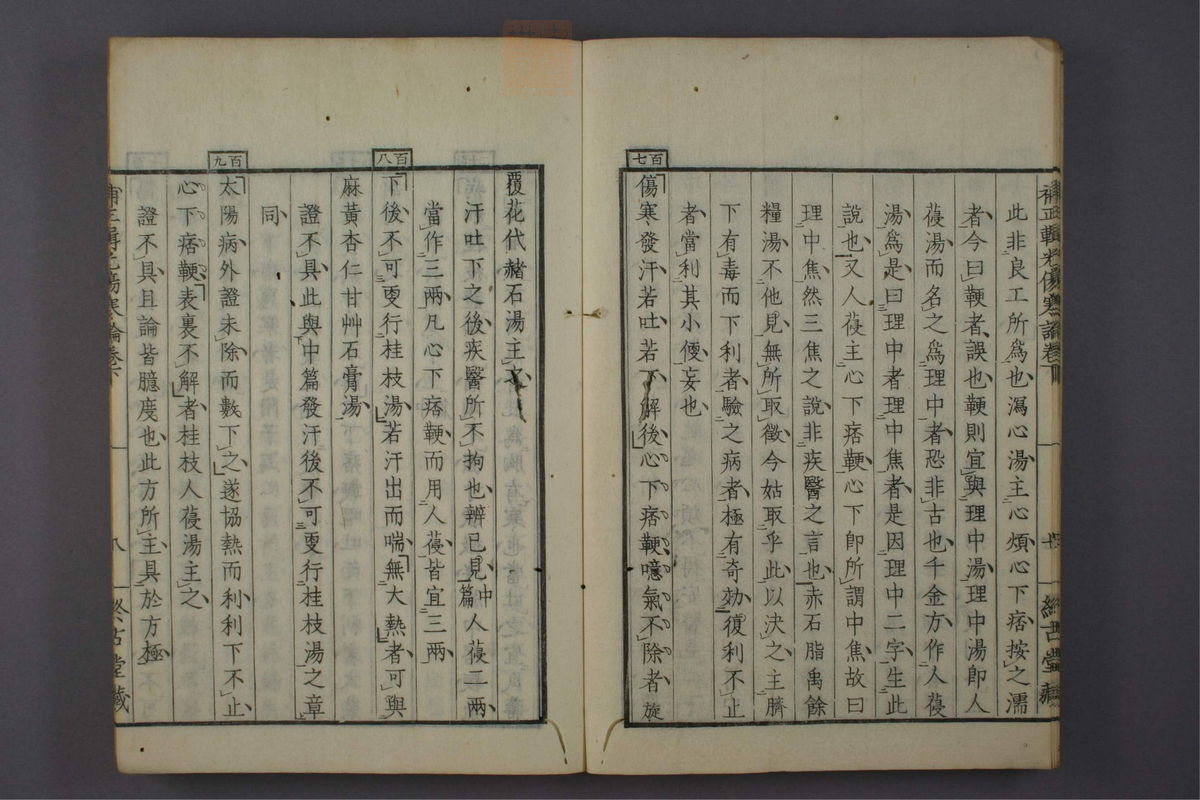 補正輯光傷寒論卷下
此非良工所爲也瀉心湯主心煩心下痞按之濡
者今曰鞕者誤也鞕則宜與理中湯理中湯即人
葠湯而名之爲理中者恐非古也千金方作人葠
湯爲是曰理中者理中焦者是因理中二字生此
說也又人葠主心下痞鞕心下即所謂中焦故曰
理中焦然三焦之說非疾醫之言也赤石脂禹餘
糧湯不他見無所取徵今姑取乎此以決之主臍
下有毒而下利者驗之病者極有奇効復利不止
者當利其小便妄也
百七
傷寒發汗若吐若下解後心下痞鞕噫氣不除者旋
覆花代赭石湯主之
汗吐下之後疾醫所不拘也辨已見中篇人葠二兩
當作三兩凡心下痞鞕而用人葠皆宜三兩
百八
下後不可更行桂枝湯若汗出而喘無大熱者可與
麻黃杏仁甘艸石膏湯
證不具此與中篇發汗後不可更行桂枝湯之章
同
百九
太陽病外證未除而數下之遂協熱而利利下不止
心下痞鞕表裏不解者桂枝人葠湯主之
證不具且論皆臆度也此方所主具於方極
補正輯光傷寒論卷下
八